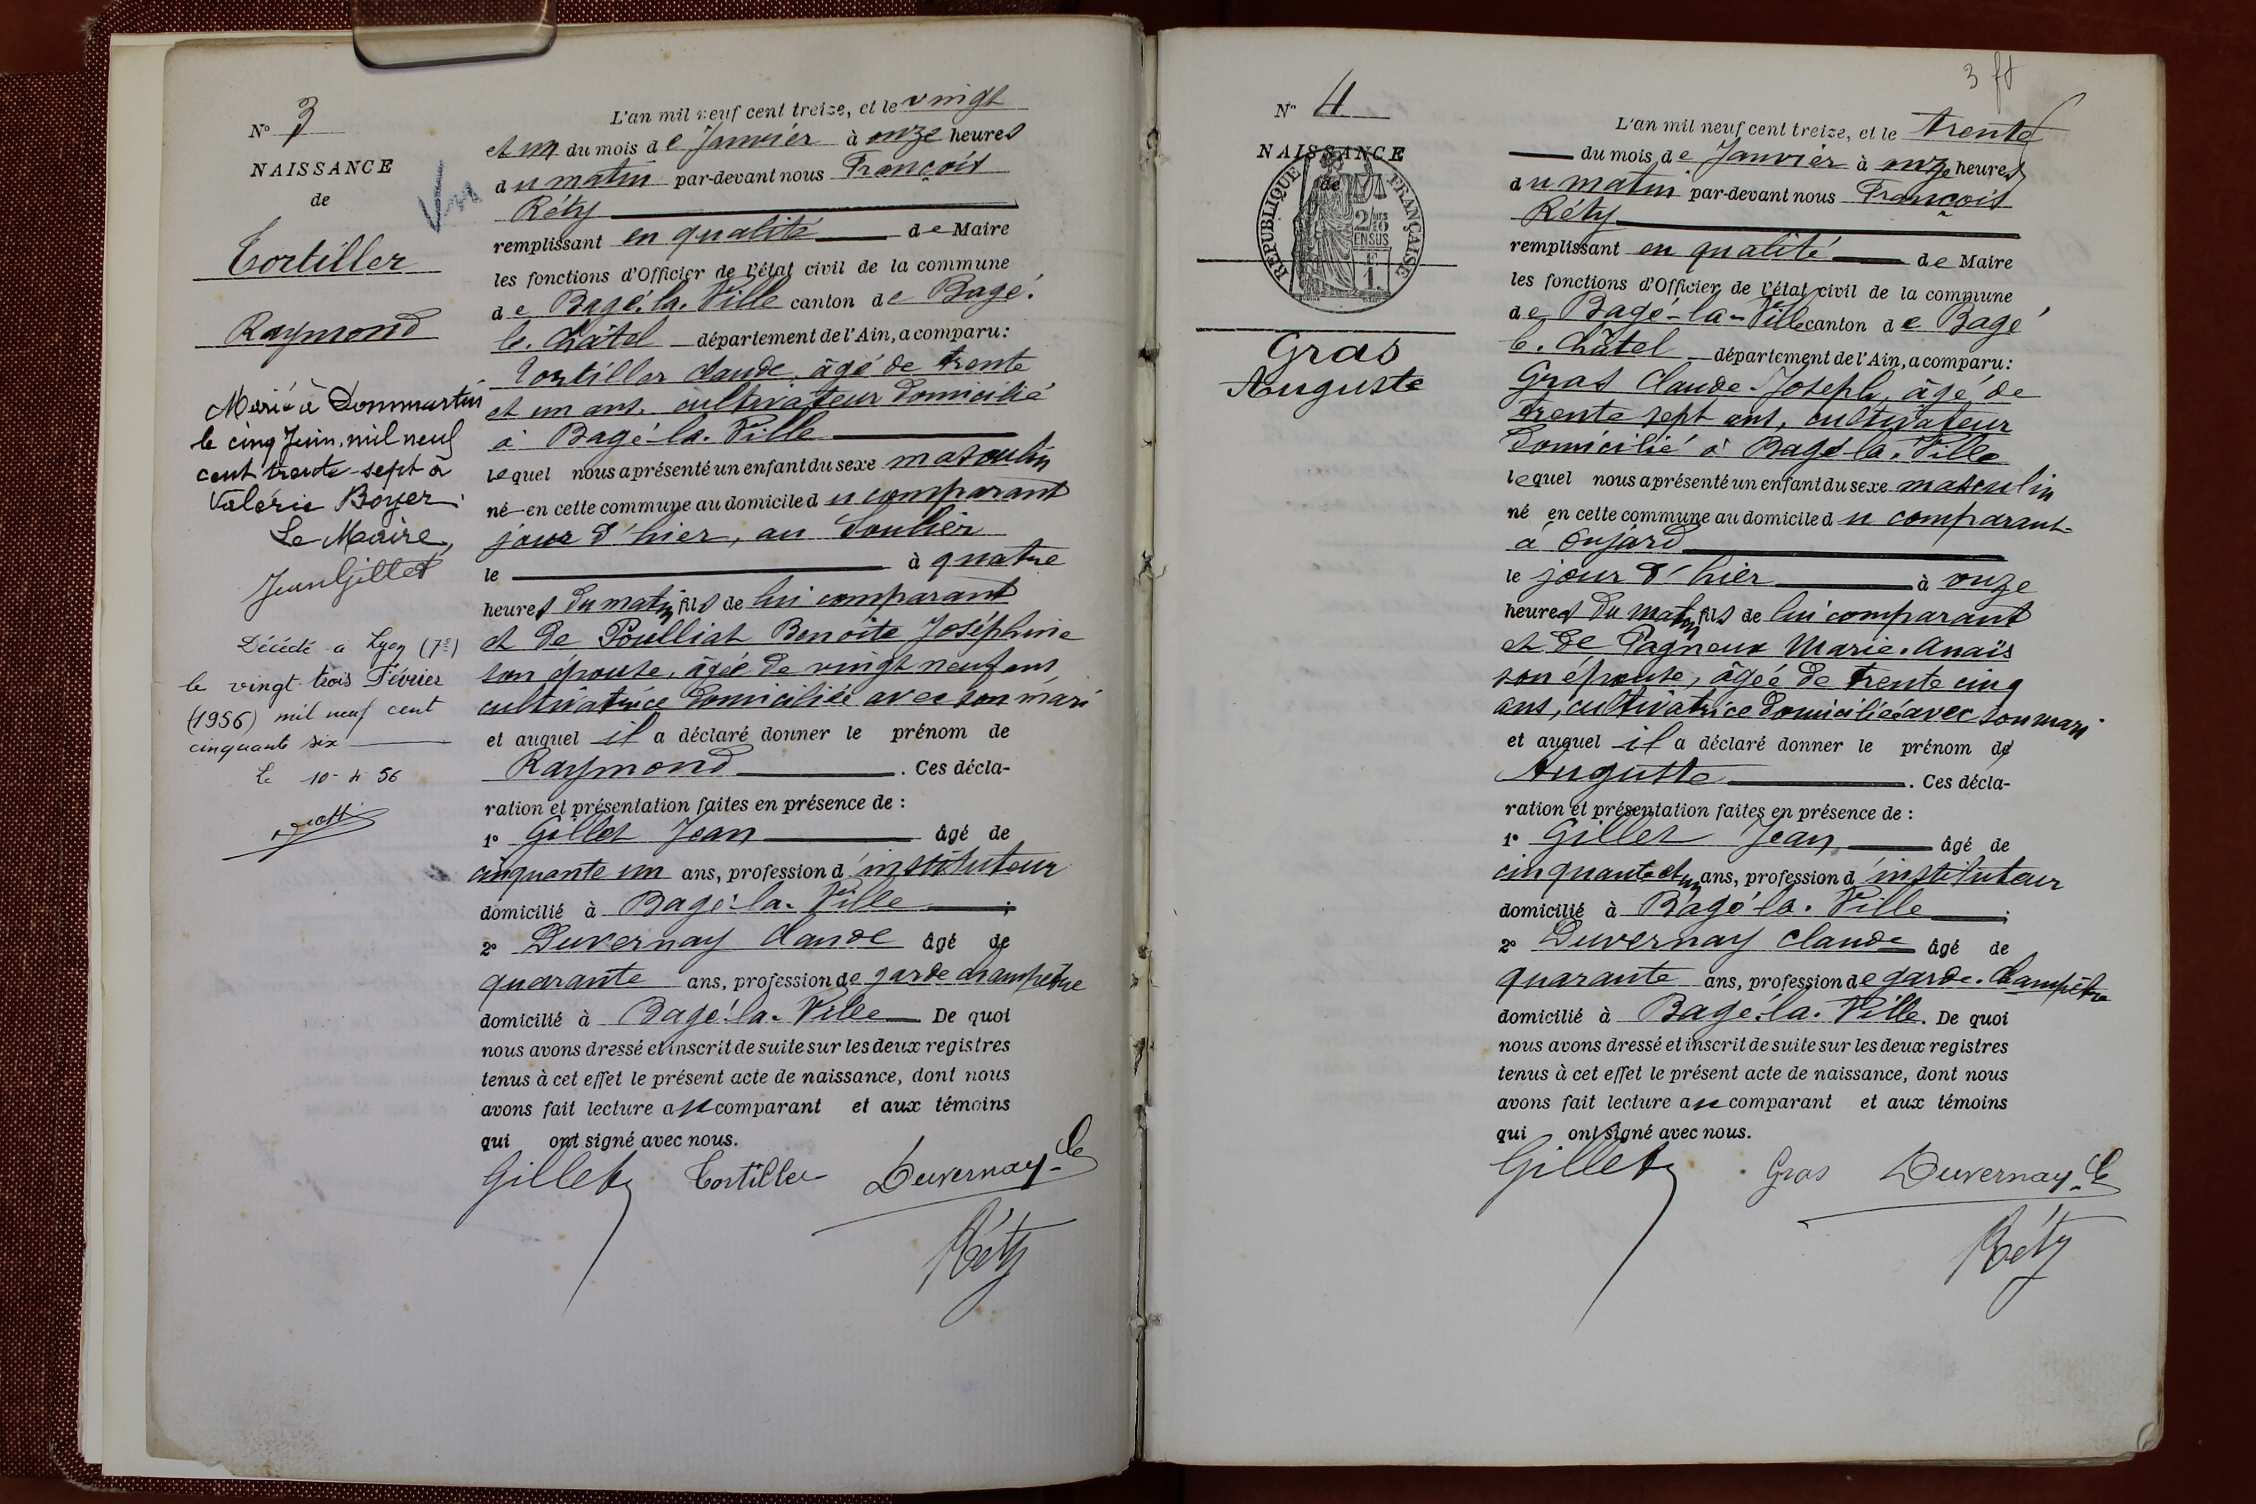 N° 3
NAISSANCE
de
Tortiller
Raymond
Marié à Dommartin
le cinq Juin, mil neuf
cent trente-sept à
Valérie Boyer.
Le Maire,
Jean Gillet
Décédé à Lyon (7e)
le vingt-trois Février
(1956) mil neuf cent
cinquante six
Le 10-4-56
L'an mil neuf cent treize, et le vingt
et un du mois de Janvier à onze heures
du matin par-devant nous François
Réty
remplissant en qualité de Maire
les fonctions d'Officier de l'état civil de la commune
de Bagé-la-Ville canton de Bagé-
le-Châtel département de l'Ain, a comparu:
Tortiller Claude, âgé de trente
et un ans, cultivateur domicilié
à Bagé-la-Ville
lequel nous a présenté un enfant du sexe masculin
né en cette commune au domicile du comparant
jour d'hier, au Soulier
le à quatre
heures du matin fils de lui comparant
et de Poulliat Benoîte Joséphine
son épouse, âgée de vingt neuf ans,
cultivatrice domiciliée avec son mari
et auquel il a déclaré donner le prénom de
Raymond . Ces décla-
ration et présentation faites en présence de :
1° Gillet Jean âgé de
cinquante un ans, profession d'instituteur
domicilié à Bagé-la-Ville ;
2° Duvernay Claude âgé de
quarante ans, profession de garde champêtre
domicilié à Bagé-la-Ville De quoi
nous avons dressé et inscrit de suite sur les deux registres
tenus à cet effet le présent acte de naissance, dont nous
avons fait lecture au comparant et aux témoins
qui ont signé avec nous.
Gillet Tortiller Duvernay C
Réty
3 ft
N° 4
NAISSANCE
de
RÉPUBLIQUE FRANÇAISE
2/10
EN SUS
F
1.
Gras
Auguste
L'an mil neuf cent treize, et le trente
du mois de Janvier à onze heures
du matin par-devant nous François
Réty
remplissant en qualité de Maire
les fonctions d'Officier de l'état civil de la commune
de Bagé-la-Ville canton de Bagé
le-Châtel département de l'Ain, a comparu:
Gras Claude-Joseph, âgé de
trente sept ans, cultivateur
domicilié à Bagé-la-Ville
lequel nous a présenté un enfant du sexe masculin
né en cette commune au domicile du comparant-
à Onjard
le jour d'hier à onze
heures du matin fils de lui comparant
et de Pagneux Marie-Anaïs
son épouse, âgée de trente cinq
ans, cultivatrice domiciliée avec son mari
et auquel il a déclaré donner le prénom de
Auguste . Ces décla-
ration et présentation faites en présence de :
1° Gillet Jean âgé de
cinquante et un ans, profession d'instituteur
domicilié à Bagé-la-Ville ;
2° Duvernay Claude âgé de
quarante ans, profession de garde-champêtre
domicilié à Bagé-la-Ville. De quoi
nous avons dressé et inscrit de suite sur les deux registres
tenus à cet effet le présent acte de naissance, dont nous
avons fait lecture au comparant et aux témoins
qui ont signé avec nous.
Gillet Gras Duvernay C
Réty